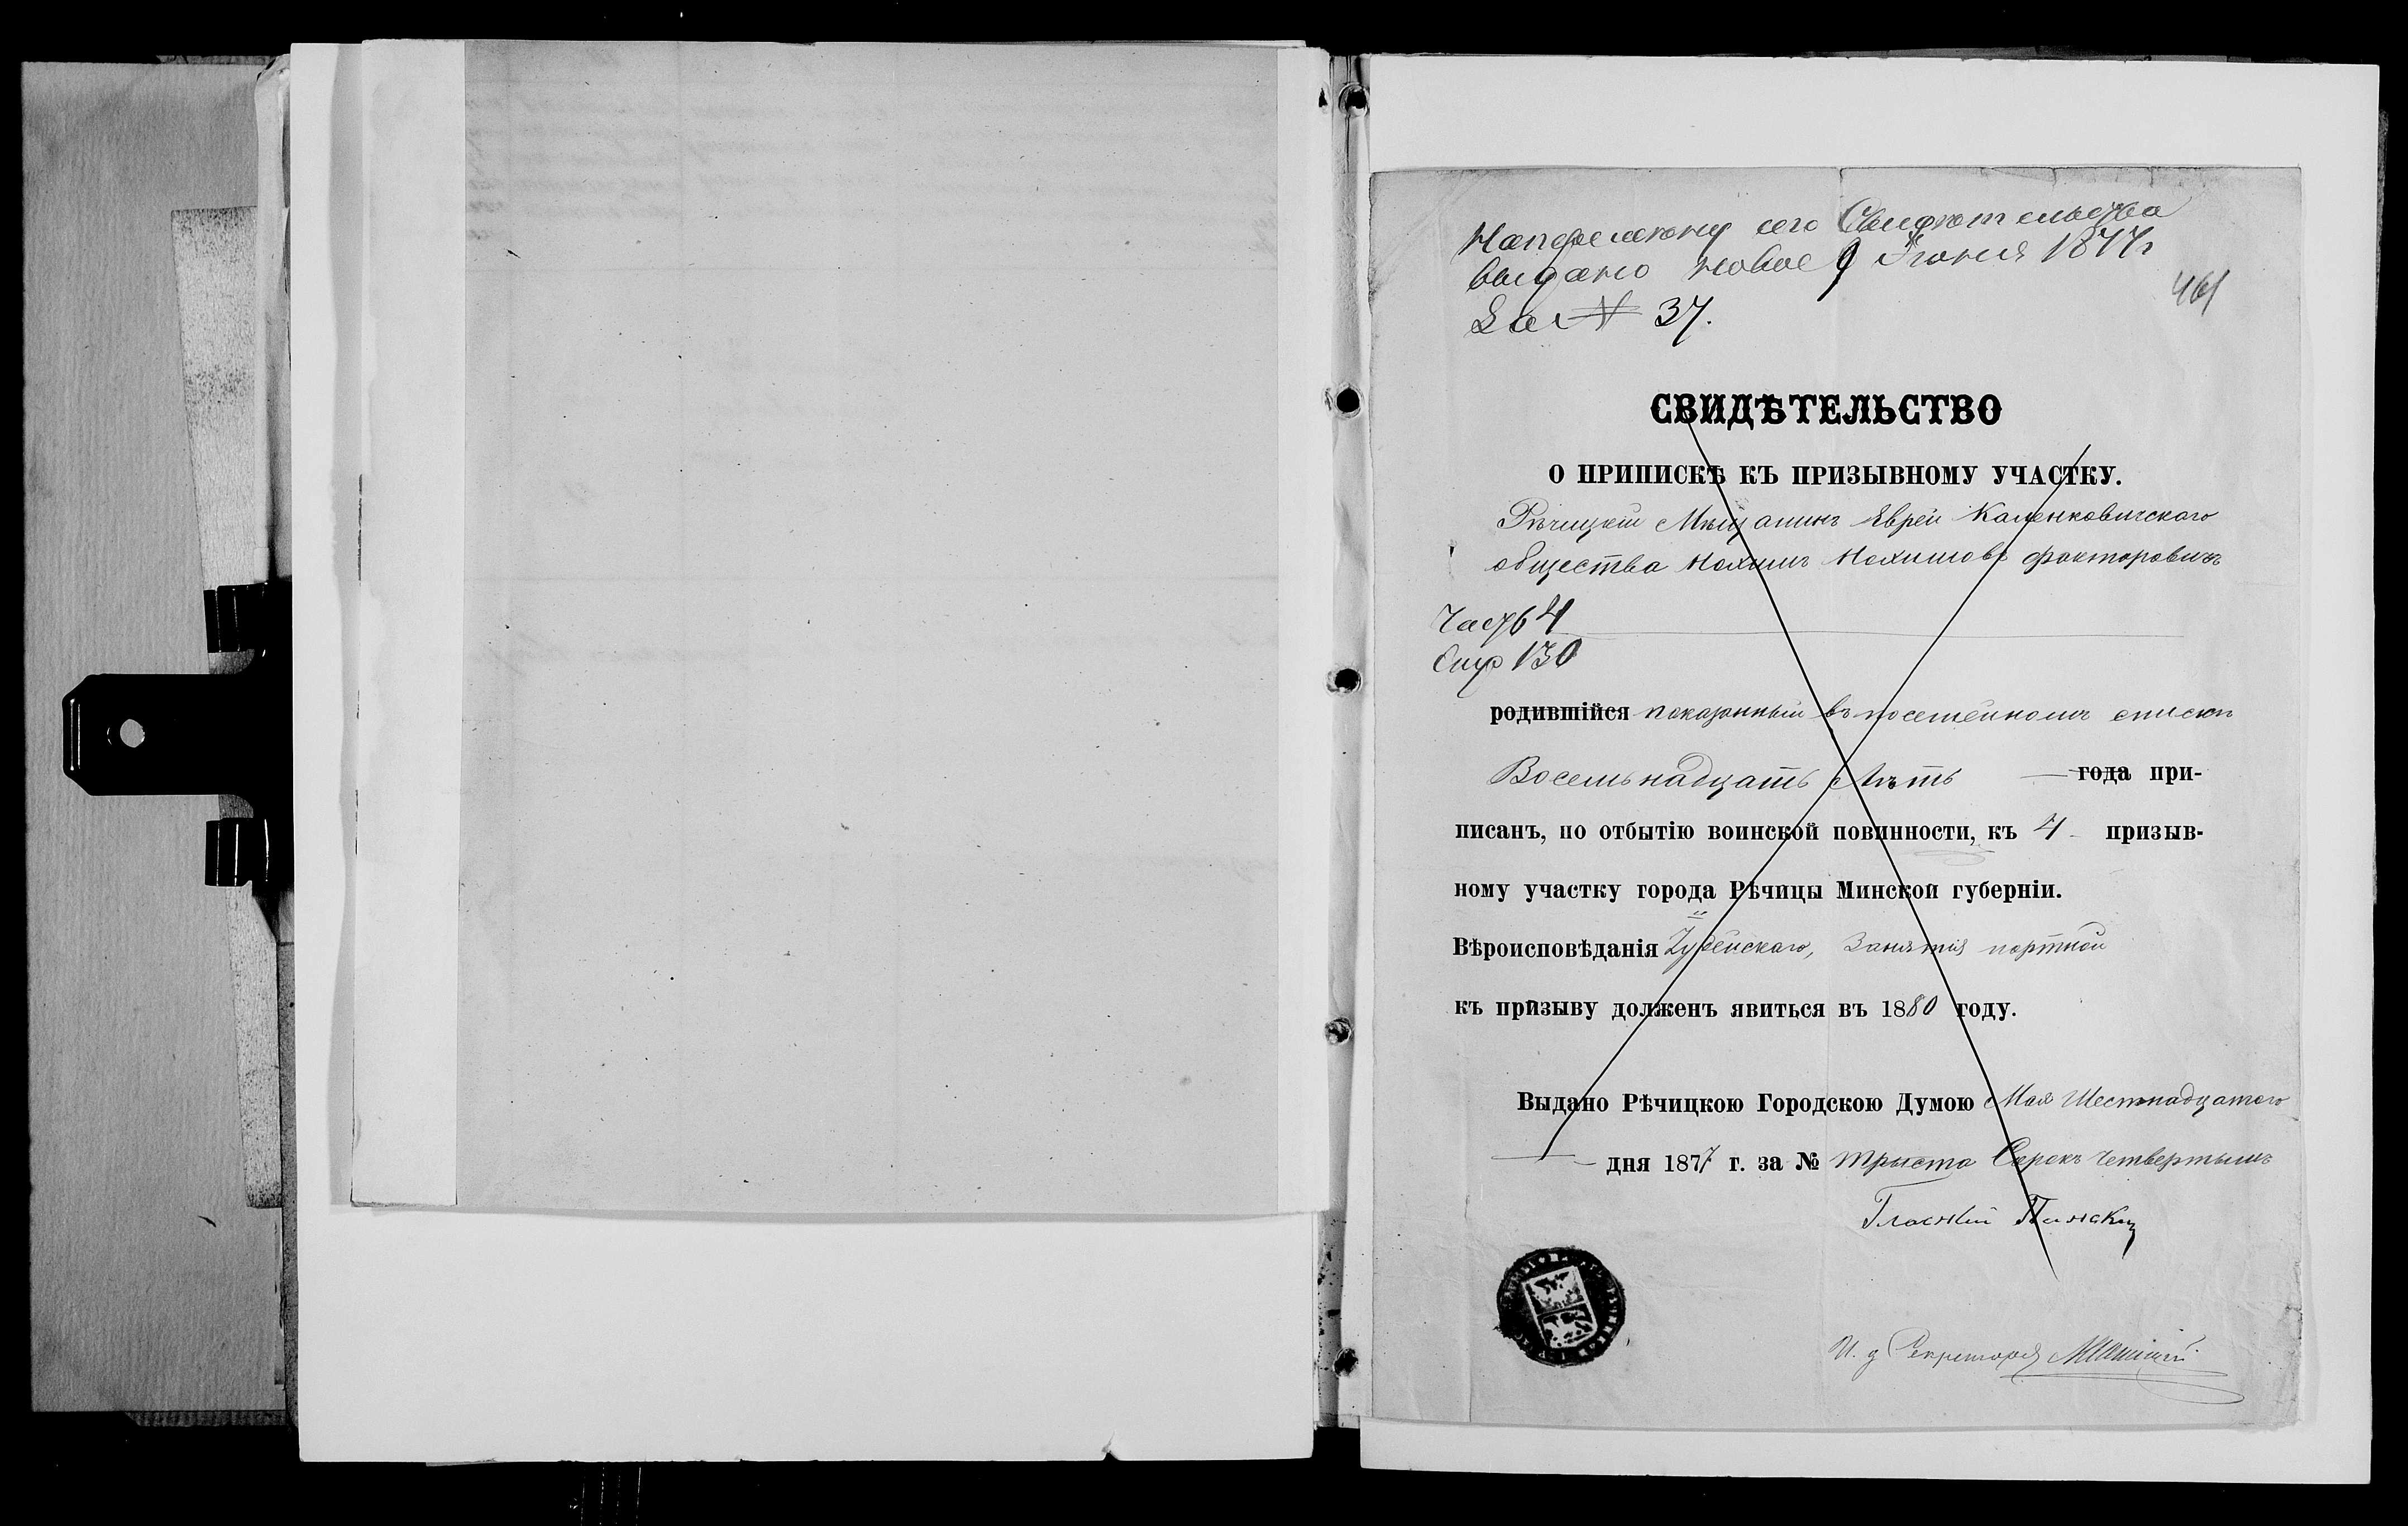 сего Свидѣтельства
выдано новое 9 Іюня 1877 г
За № 37.
461
СВИДѢТЕЛЬСТВО
О ПРИПИСКѢ КЪ ПРИЗЫВНОМУ УЧАСТКУ.
Рѣчицкій Мѣщанинъ Еврей Каленковичскаго
общества Нохимъ Нохимовъ Факторовичъ
Часть 4
130
родившійся показанный въ посемейномъ спискѣ
Восемьнадцать Лѣтъ — года при-
писанъ, по отбытію воинской повинности, къ 4 призыв-
ному участку города Рѣчицы Минской губерніи.
Вѣроисповѣданія Іудейскаго, Занятія портной
къ призыву долженъ явиться въ 1880 году.
Выдано Рѣчицкою Городскою Думою Мая Шестнадцатого
дня 1877 г. за № Триста Сорокъ четвертымъ
Гласный Пинскій
И. д Секретаря